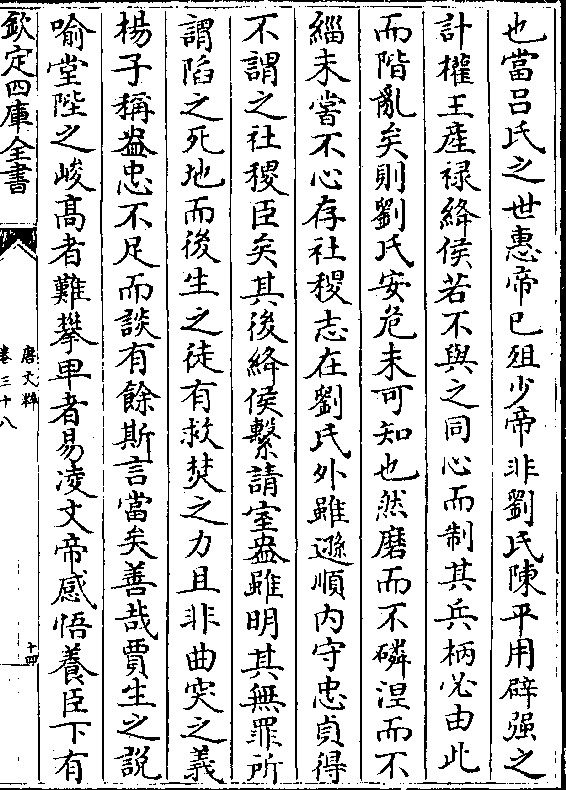 也當呂氏之世惠帝已殂少帝非劉氏陳平用辟强之
計權王產禄絳侯若不與之同心而制其兵柄必由此
而階亂矣則劉氏安危未可知也然磨而不磷湼而不
緇未嘗不心存社稷志在劉氏外雖遜順内守忠貞得
不謂之社稷臣矣其後絳侯繫請室盎雖明其無罪所
謂陷之死地而後生之徒有救焚之力且非曲突之義
楊子稱盎忠不足而談有餘斯言當矣善哉賈生之説
喻堂陛之峻髙者難攀卑者易凌文帝感悟養臣下有
欽定四庫全書
唐文粹
卷三十八
十四